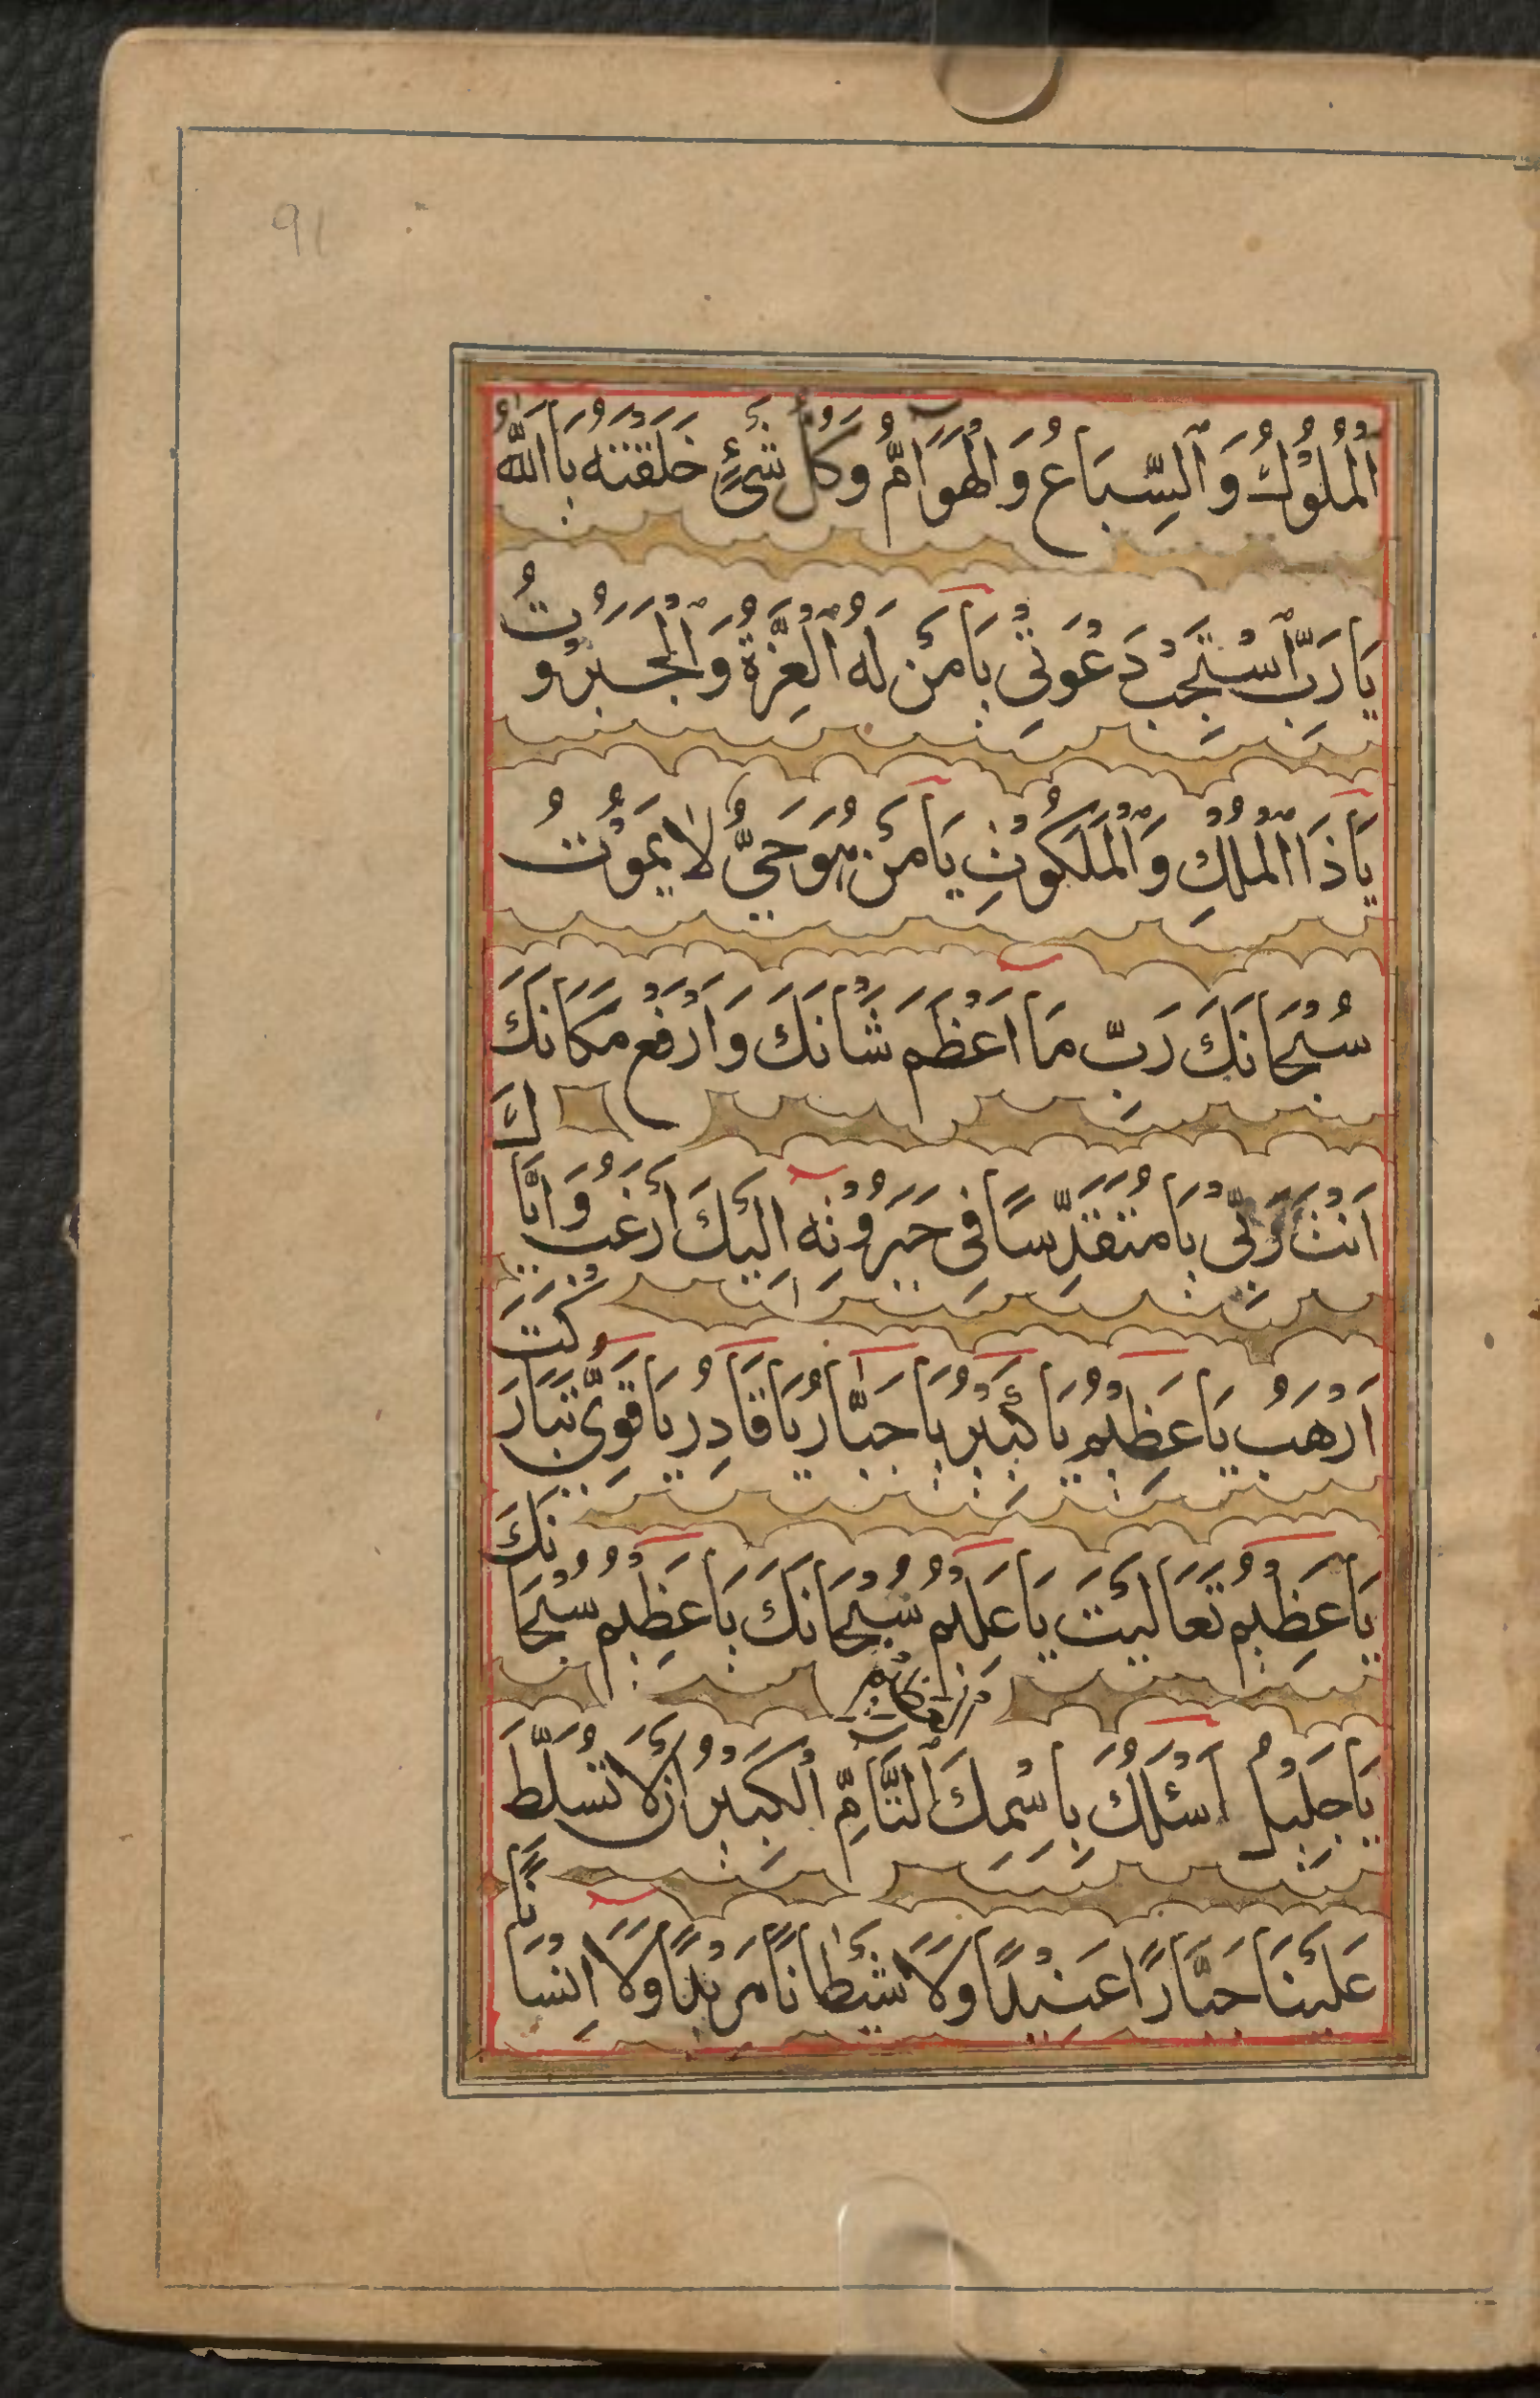 91
اَلْمُلُوْكُ وَ اَلسِّبَاعُ وَ الْهَوَآمُّ وَكُلُّ شَىْءٍ خَلَقْتَهُ يَا اَللّٰهُ
يَا رَبِّ اَسْتَجِبْ دَعْوَتِىْ يَا مَنْ لَهُ الْعِزَّةُ وَ الْجَبَرُوْتُ
يَا ذَا الْمُلْكِ وَ الْمَلَكُوْتِ يَا مَنْ هُوَ حَىٌّ لَا يَمُوْتُ
سُبْحَانَكَ رَبِّ مَا اَعْظَمَ شَانَكَ وَ اَرْفَعَ مَكَانَكَ
اَنْتَ رَبِّى يَا مُتَقَدِّسًا فِى جَبَرُوْتِهِ اِلَيْكَ اَرْغَبُ وَ اِيَّاكَ
اَرْهَبُ يَا عَظِيْمُ يَا كَبِيْرُ يَا جَبَّارُ يَا قَادِرُ يَا قَوِىُّ تَبَارَكْتَ
يَا عَظِيْمُ تَعَالَيْتَ يَا عَلِيْمُ سُبْحَانَكَ يَا عَظِيْمُ سُبْحَانَكَ
يَا جَلِيْلُ اَسْئَلُكَ بِاسْمِكَ التَّآمِّ الْكَبِيْرِ اَنْ لَا تُسَلِّطَ
عَلَيْنَا جَبَّارًا عَنِيْدًا وَلَا شَيْطَانًا مَرِيْدًا وَلَا اِنْسَانًا